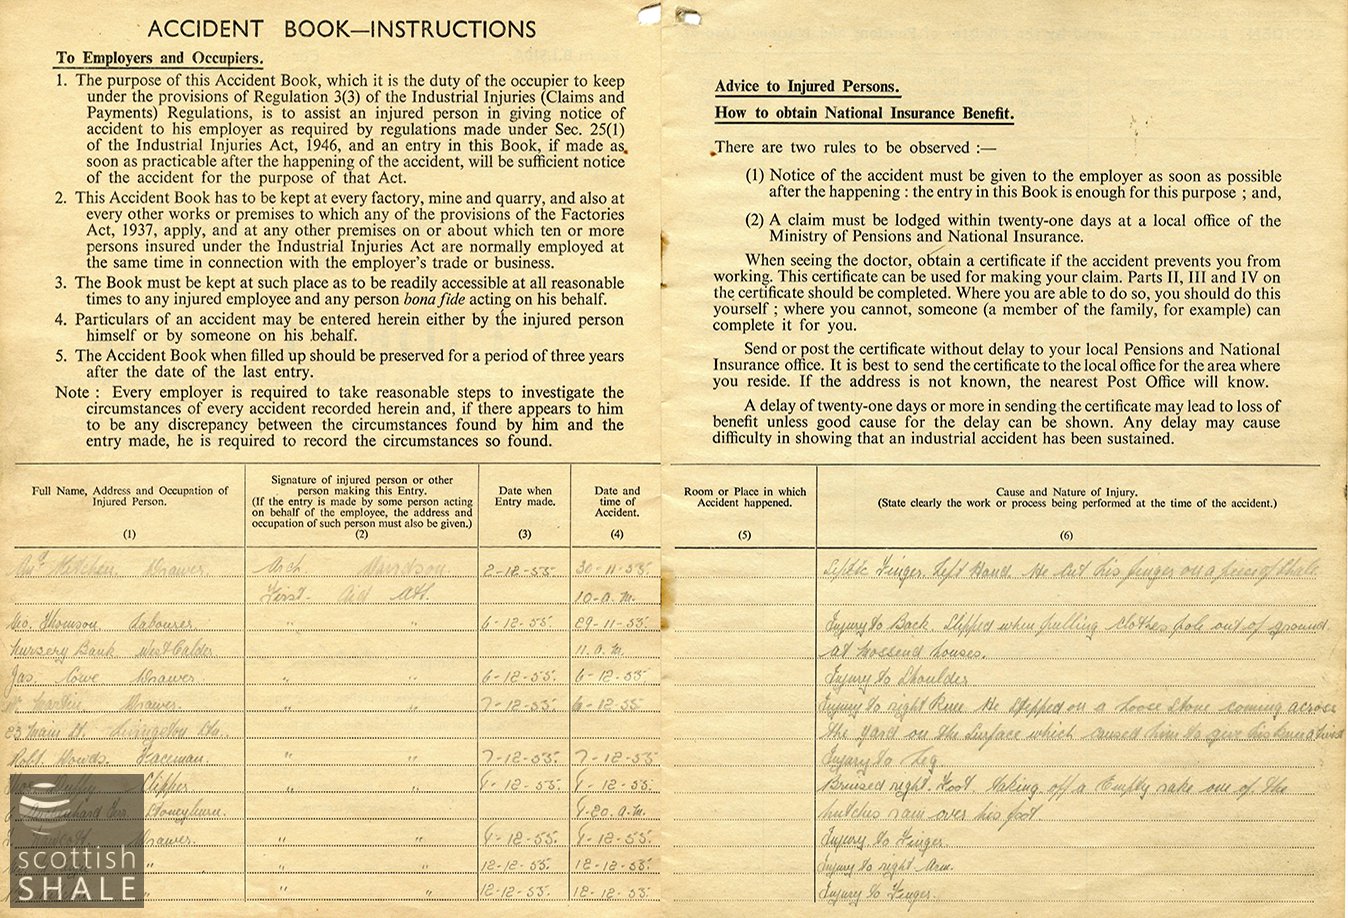 ACCIDENT BOOK—INSTRUCTIONS
To Employers and Occupiers.
1. The purpose of this Accident Book, which it is the duty of the occupier to keep
under the provisions of Regulation 3(3) of the Industrial Injuries (Claims and
Payments) Regulations, is to assist an injured person in giving notice of
accident to his employer as required by regulations made under Sec. 25(1)
of the Industrial Injuries Act, 1946, and an entry in this Book, if made as
soon as practicable after the happening of the accident, will be sufficient notice
of the accident for the purpose of that Act.
2. This Accident Book has to be kept at every factory, mine and quarry, and also at
every other works or premises to which any of the provisions of the Factories
Act, 1937, apply, and at any other premises on or about which ten or more
persons insured under the Industrial Injuries Act are normally employed at
the same time in connection with the employer's trade or business.
3. The Book must be kept at such place as to be readily accessible at all reasonable
times to any injured employee and any person bona fide acting on his behalf.
4. Particulars of an accident may be entered herein either by the injured person
himself or by someone on his behalf.
5. The Accident Book when filled up should be preserved for a period of three years
after the date of the last entry.
Note : Every employer is required to take reasonable steps to investigate the
circumstances of every accident recorded herein and, if there appears to him
to be any discrepancy between the circumstances found by him and the
entry made, he is required to record the circumstances so found.
Advice to Injured Persons.
How to obtain National Insurance Benefit.
There are two rules to be observed :—
(1) Notice of the accident must be given to the employer as soon as possible
after the happening : the entry in this Book is enough for this purpose ; and,
(2) A claim must be lodged within twenty-one days at a local office of the
Ministry of Pensions and National Insurance.
When seeing the doctor, obtain a certificate if the accident prevents you from
working. This certificate can be used for making your claim. Parts II, III and IV on
the certificate should be completed. Where you are able to do so, you should do this
yourself ; where you cannot, someone (a member of the family, for example) can
complete it for you.
Send or post the certificate without delay to your local Pensions and National
Insurance office. It is best to send the certificate to the local office for the area where
you reside. If the address is not known, the nearest Post Office will know.
A delay of twenty-one days or more in sending the certificate may lead to loss of
benefit unless good cause for the delay can be shown. Any delay may cause
difficulty in showing that an industrial accident has been sustained.
Full Name, Address and Occupation of
Injured Person.
(1)
Signature of injured person or other
person making this Entry.
(If the entry is made by some person acting
on behalf of the employee, the address and
occupation of such person must also be given.)
(2)
Date when
Entry made.
(3)
Date and
time of
Accident.
(4)
Room or Place in which
Accident happened.
(5)
Cause and Nature of Injury.
(State clearly the work or process being performed at the time of the accident.)
(6)
Drawer. Arch. Davidson. 2-12-55 30-11-55. Septic Finger Left Hand. He cut his finger on a piece of shale
First Aid Att. 10-a.m.
Geo. Thomson Labourer. " " 6-12-55. 29-11-55. Injury to Back. Slipped when pulling clothes pole out of ground
Nursery Bank West Calder 11.a.m. at Mossend houses.
Jas. Lowe Drawer. " " 6-12-55. 6-12-55. Injury to Shoulder
Martin Drawer. " " 7-12-55. 6-12-55 Injury to right Knee. He stepped on a loose stone coming across
23 Main St. Livingston Stn. the yard on the surface which caused him to give his knee a twist
Robt. Faceman. " 7-12-55. 7-12-55 Injury to Leg.
Duffy Clipper " " 9-12-55. 9-12-55. Bruised right Foot. taking off a Empty rake one of the
Terr. Stoneyburn. 9-20.a.m. hutches ran over his foot.
Drawer. " " 9-12-55. 9-12-55. Injury to Finger.
" " " 12-12-55. 12-12-55. Injury to right Arm.
" " " 12-12-55. 12-12-55. Injury to Finger.
scottish
SHALE